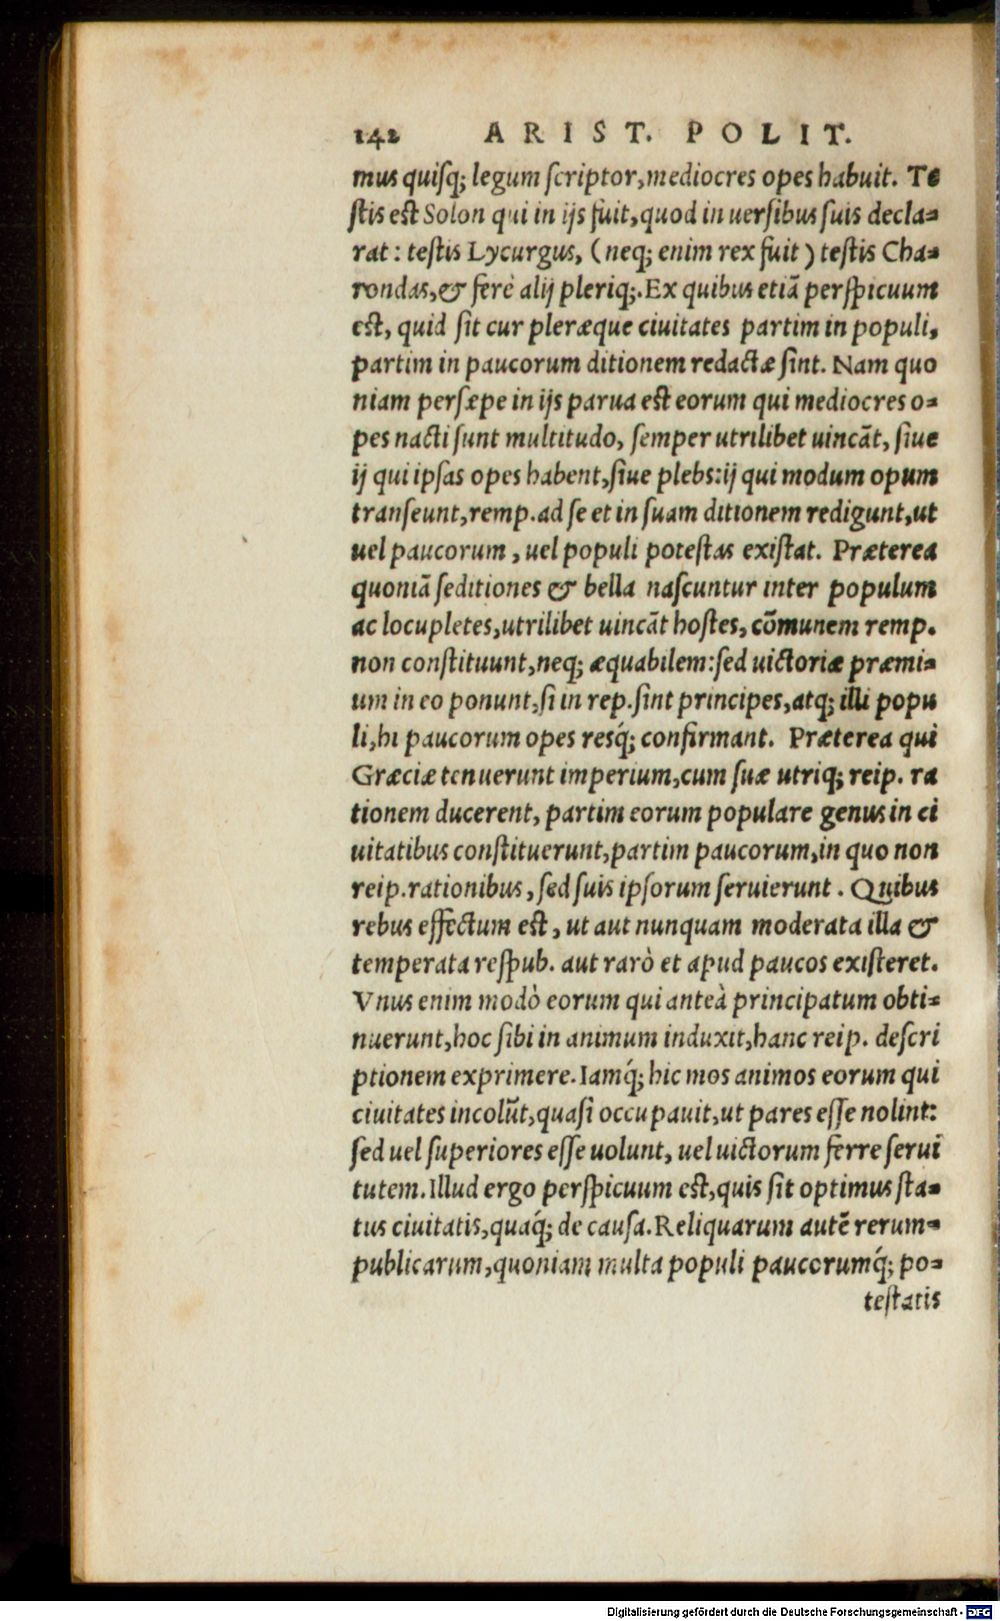 142 ARIST. POLIT.
mus quisq; legum scriptor, mediocres opes habuit. Te
stis est Solon qui in ijs fuit, quod in uersibus suis decla=
rat: testis Lycurgus, (neq; enim rex fuit) testis Cha=
rondas, & ferè alij pleriq;. Ex quibus etiā perspicuum
est, quid sit cur pleræque ciuitates partim in populi,
partim in paucorum ditionem redactæ sint. Nam quo
niam persæpe in ijs parua est eorum qui mediocres o=
pes nacti sunt multitudo, semper utrilibet uincāt, siue
ij qui ipsas opes habent, siue plebs: ij qui modum opum
transeunt, remp. ad se et in suam ditionem redigunt, ut
uel paucorum, uel populi potestas existat. Præterea
quoniā seditiones & bella nascuntur inter populum
ac locupletes, utrilibet uincāt hostes, cōmunem remp.
non constituunt, neq; æquabilem: sed uictoriæ præmi=
um in eo ponunt, si in rep. sint principes, atq; illi popu
li, hi paucorum opes resq́; confirmant. Præterea qui
Græciæ tenuerunt imperium, cum suæ utriq; reip. ra
tionem ducerent, partim eorum populare genus in ci
uitatibus constituerunt, partim paucorum, in quo non
reip. rationibus, sed suis ipsorum seruierunt. Quibus
rebus effectum est, ut aut nunquam moderata illa &
temperata respub. aut rarò et apud paucos existeret.
Vnus enim modò eorum qui anteà principatum obti=
nuerunt, hoc sibi in animum induxit, hanc reip. descri
ptionem exprimere. Iamq́; hic mos animos eorum qui
ciuitates incolūt, quasi occupauit, ut pares esse nolint:
sed uel superiores esse uolunt, uel uictorum ferre serui
tutem. Illud ergo perspicuum est, quis sit optimus sta=
tus ciuitatis, quaq́; de causa. Reliquarum autē rerum=
publicarum, quoniam multa populi paucorumq́; po=
testatis
Digitalisierung gefördert durch die Deutsche Forschungsgemeinschaft - DFG